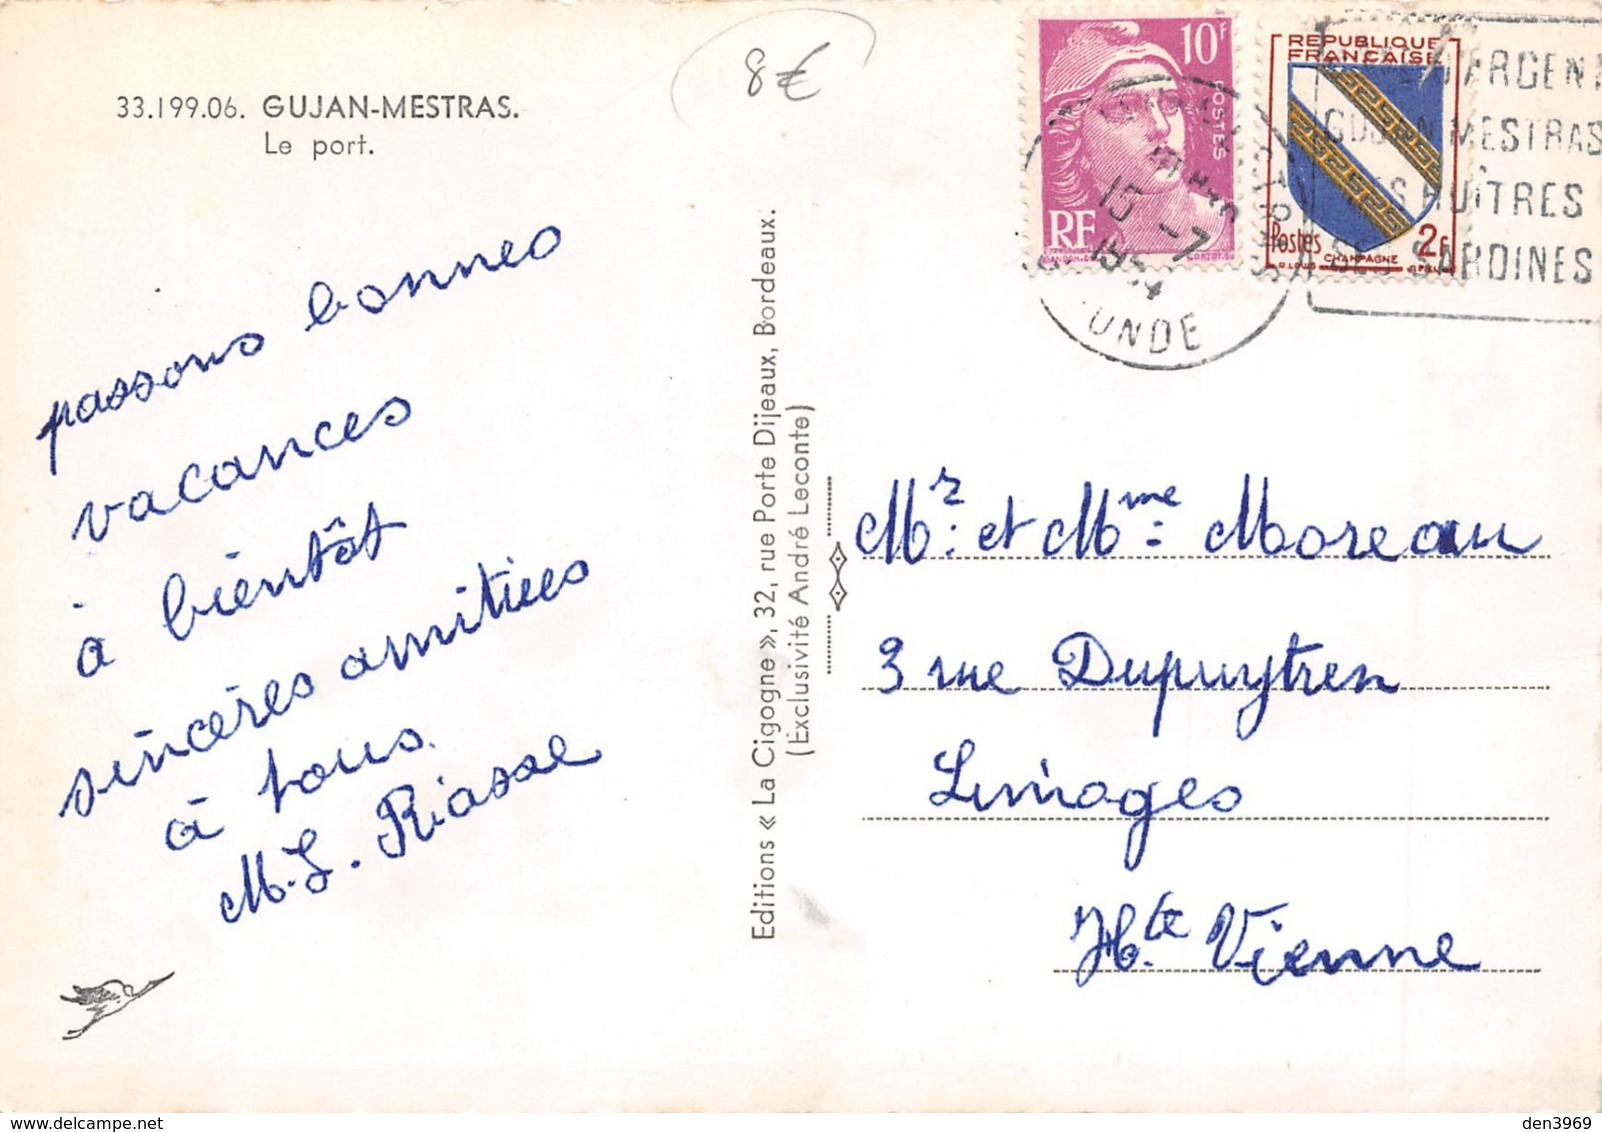 33.199.06. GUJAN-MESTRAS.
Le port.
8€
passons bonnes
vacances
à bientôt
sincères amitiées
à tous.
M.L. Riasse
Editions « La Cigogne », 32, rue Porte Dijeaux, Bordeaux.
(Exclusivité André Leconte)
10F
POSTES
RF
GANDON
REPUBLIQUE
FRANÇAISE
Postes 2F
CHAMPAGNE
15 -7
1954
ARGENT
GUJAN MESTRAS
SES HUITRES
SES SARDINES
Mr. et Mme. Moreau
3 rue Dupuytren
Limoges
Hte Vienne
den3969